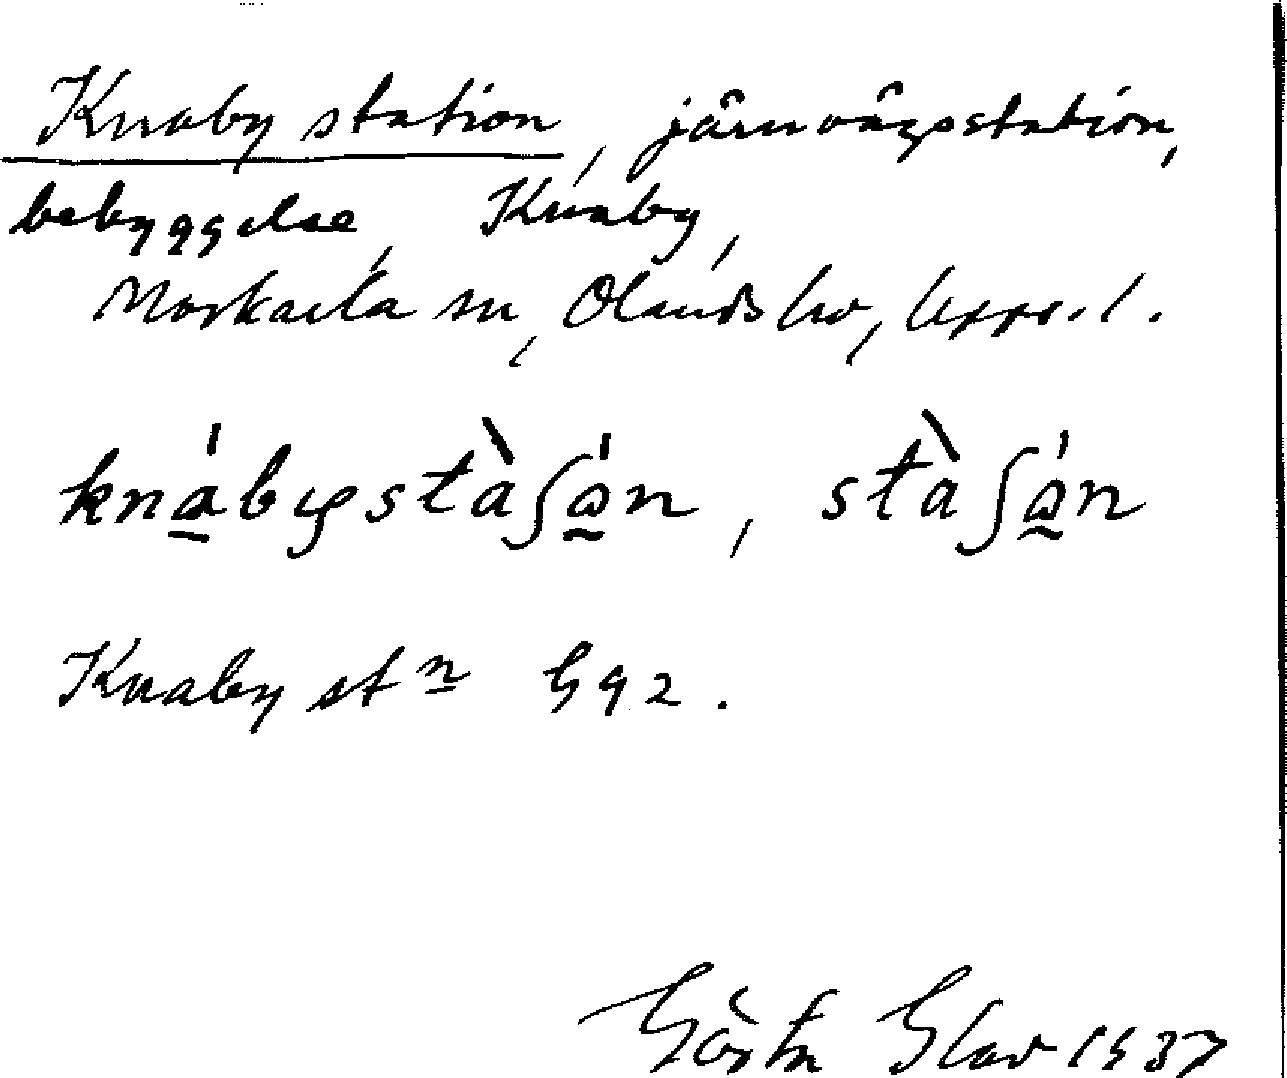 Knaby station, järnvägsstation,
bebyggelse, Knaby,
Morkarla sn, Olands hd, Upps. l.
knábystàʃá̰n, stàʃá̰n
Knaby stn G 92.
Gösta Glav 1937